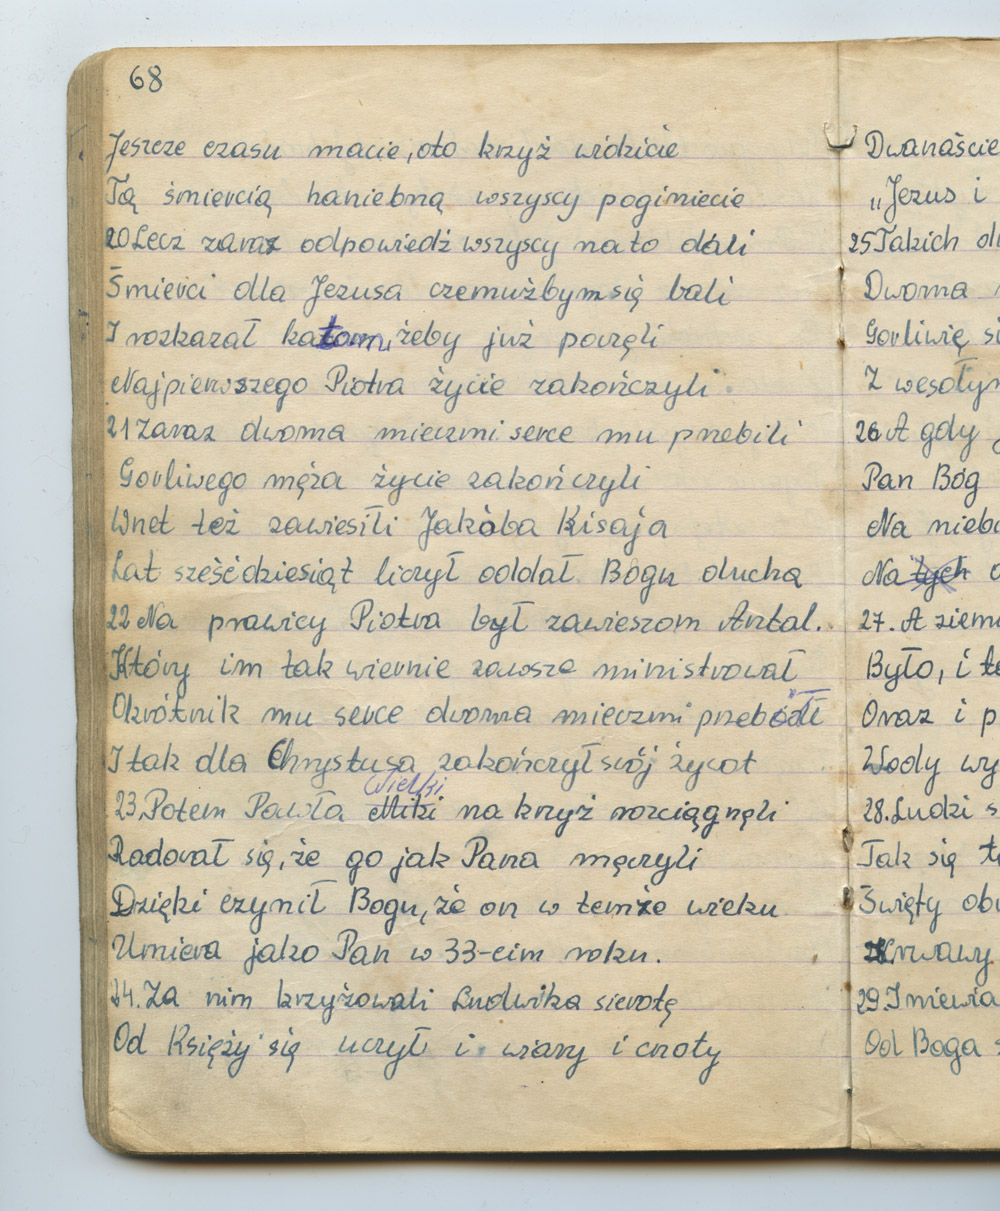 68
Jeszcze czasu macie, oto krzyż widzicie
Tą śmiercią haniebną wszyscy poginiecie
20 Lecz zaraz odpowiedź wszyscy na to dali
Śmierci dla Jezusa czemużbym się bali
I rozkazał katom, żeby już poczęli
Najpierwszego Piotra życie zakończyli
21 Zaraz dwoma mieczmi serce mu przebili
Gorliwego męża życie zakończyli
Wnet też zawiesili Jakóba Kisaja
Lat sześćdziesiąt liczył oddał Bogu ducha
22 Na prawicy Piotra był zawieszom Antal.
Który im tak wiernie zawsze ministrował
Okrótnik mu serce dwoma mieczmi przebódł
I tak dla Chrystusa zakończył swój życot
Wielki
23. Potem Pawła Miki na krzyż rozciągnęli
Radował się, że go jak Pana męczyli
Dzięki czynił Bogu, że on w temże wieku
Umiera jako Pan w 33-cim roku.
24. Za nim krzyżowali Ludwika sierotę
Od Księży się uczył i wiary i cnoty
Dwanaście
"Jezus i
25 Takich
Dwoma
Gorliwię
Z
26 A gdy
Pan Bóg
Na
Na tych
27. A
Było, i
Oraz i
Wody
28. Ludzi
Tak się
Święty
Krwawy
29. I
Od Boga